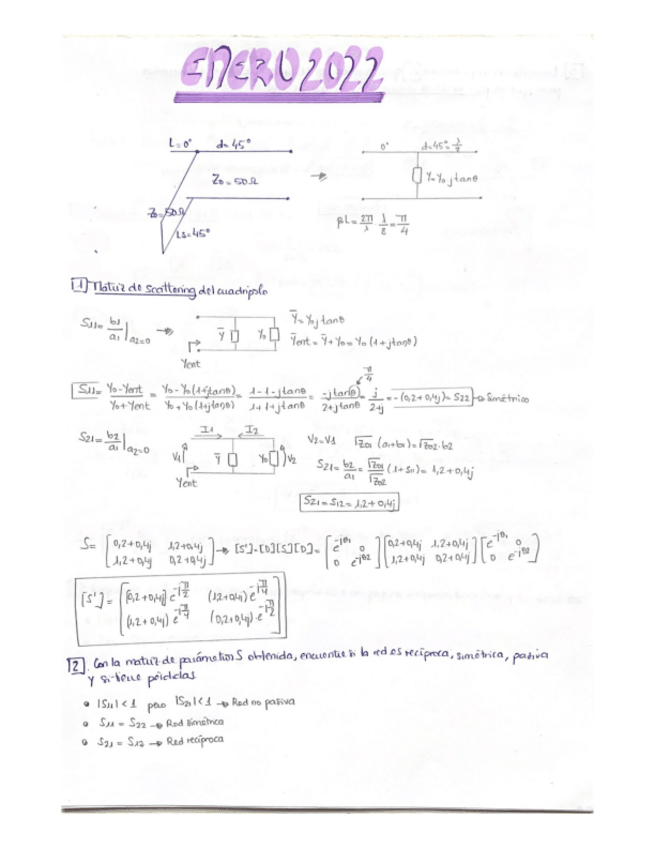 ENERO 2022
L=0° d=45°
0° d=45°=λ/8
Z0=50Ω
Y=Y0 j tanθ
Z0=50Ω
Ls=45°
βL = 2π/λ · λ/8 = π/4
1 Matriz de scattering del cuadripolo
S11 = b1/a1 |a2=0
Ȳ Y0
Ȳ=Y0 j tanθ
Ȳent = Ȳ+Y0 = Y0 (1+j tanθ)
Yent
π/4
S11 = Y0-Yent / Y0+Yent = Y0-Y0(1+j tanθ) / Y0+Y0(1+j tanθ) = 1-1-j tanθ / 1+1+j tanθ = -j tanθ / 2+j tanθ = j / 2+j = -(0,2+0,4j) = S22 → Simétrico
S21 = b2/a1 |a2=0
I1 I2
V1 Ȳ Y0 V2
Yent
V2=V1 √Z01 (a1+b1) = √Z02 · b2
S21 = b2/a1 = √Z01/√Z02 (1+S11) = 1,2+0,4j
S21=S12=1,2+0,4j
S= [0,2+0,4j 1,2+0,4j; 1,2+0,4j 0,2+0,4j] → [S']=[D][S][D]= [e^-jθ1 0; 0 e^-jθ2] [0,2+0,4j 1,2+0,4j; 1,2+0,4j 0,2+0,4j] [e^-jθ1 0; 0 e^-jθ2]
[S'] = [(0,2+0,4j) e^-jπ/2 (1,2+0,4j) e^-jπ/4; (1,2+0,4j) e^-jπ/4 (0,2+0,4j) · e^-jπ/2]
2. Con la matriz de parámetros S obtenida, encuentre si la red es recíproca, simétrica, pasiva
y si tiene pérdidas
• |S11| < 1 pero |S21| < 1 → Red no pasiva
• S11 = S22 → Red simétrica
• S21 = S12 → Red recíproca